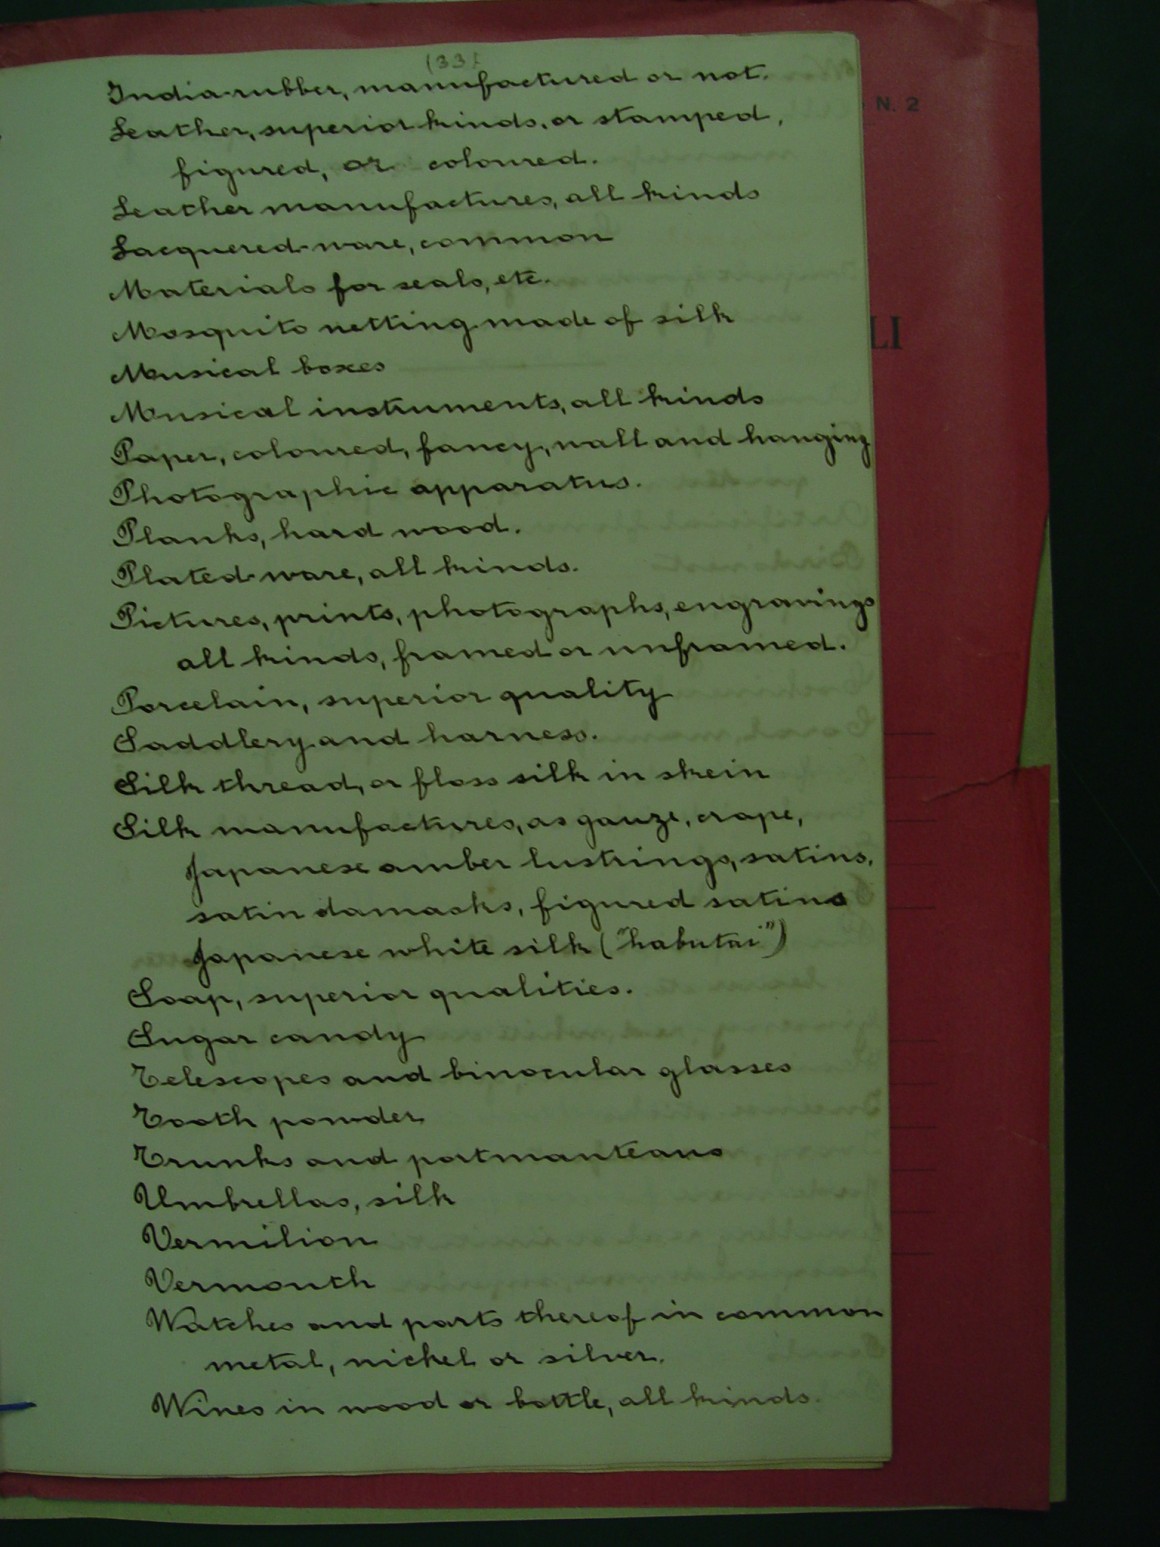 (33)
India-rubber, manufactured or not.
Leather, superior kinds, or stamped,
figured, or coloured.
Leather manufactures, all kinds
Lacquered-ware, common
Materials for seals, etc.
Mosquito netting made of silk
Musical boxes
Musical instruments, all kinds
Paper, coloured, fancy, wall and hanging
Photographic apparatus.
Planks, hard wood.
Plated-ware, all kinds.
Pictures, prints, photographs, engravings
all kinds, framed or unframed.
Porcelain, superior quality
Saddlery and harness.
Silk thread, or floss silk in skein
Silk manufactures, as gauze, crape,
Japanese amber lustrings, satins,
satin damasks, figured satins
Japanese white silk ("habutai")
Soap, superior qualities.
Sugar candy
Telescopes and binocular glasses
Tooth powder
Trunks and portmanteaus
Umbrellas, silk
Vermilion
Vermouth
Watches and parts thereof in common
metal, nickel or silver.
Wines in wood or bottle, all kinds.
N. 2
LI